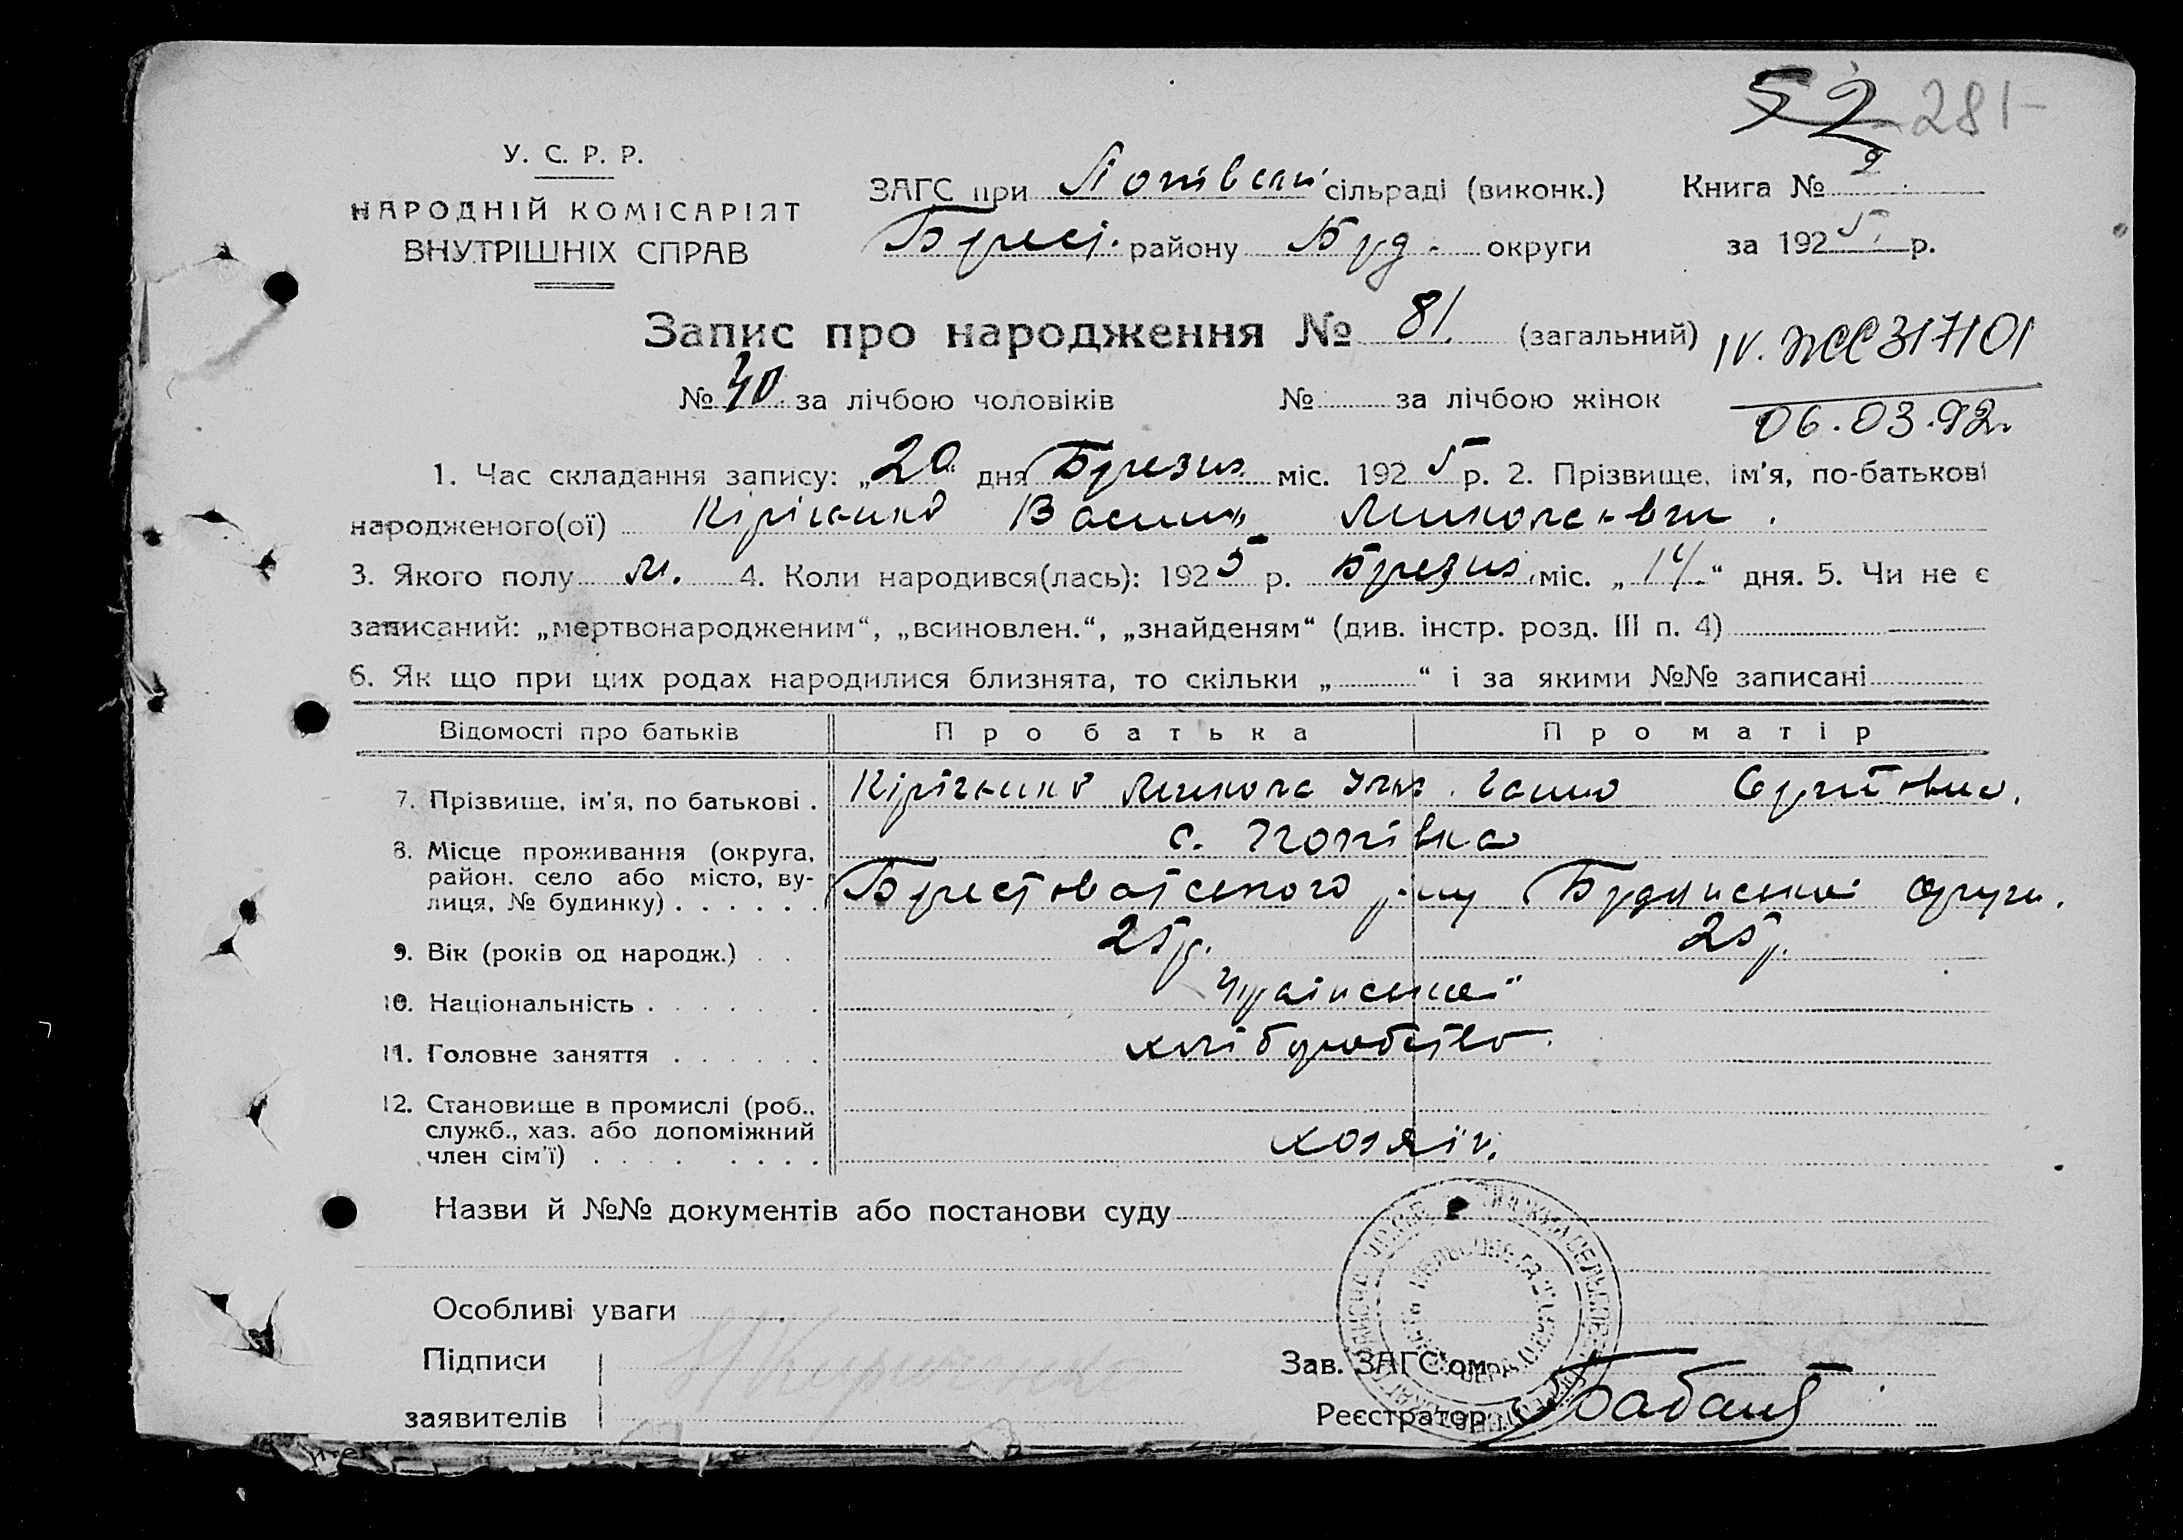 52 281
У. С. Р. Р.
НАРОДНІЙ КОМІСАРІЯТ
ВНУТРІШНІХ СПРАВ
ЗАГС при Попівській сільраді (виконк.) Книга №
Брест. району Буд. округи за 1925 р.
Запис про народження № 81. (загальний)
№ 40 за лічбою чоловіків № за лічбою жінок
317101
06.03.92
1. Час складання запису: „20“ дня Березня міс. 1925 р. 2. Прізвище, ім'я, по-батькові
народженого(ої) Кіріченко Василь Миколаєвич.
3. Якого полу м. 4. Коли народився(лась): 1925 р. Березня міс. „14“ дня. 5. Чи не є
записаний: „мертвонародженим“, „всиновлен.“, „знайденям“ (див. інстр. розд. III п. 4)
6. Як що при цих родах народилися близнята, то скільки „ “ і за якими №№ записані
Відомості про батьків Про батька Про матір
7. Прізвище, ім'я, по батькові. Кіріченко Микола Ганна Сергіївна.
8. Місце проживання (округа, с. Попівка
район. село або місто, ву-
лиця, № будинку) Брестоватського р-ну округи.
9. Вік (років од народж.) 25 р. 25 р.
10. Національність Української
11. Головне заняття хліборобство.
12. Становище в промислі (роб.,
служб., хаз. або допоміжний
член сім'ї) хозяїн.
Назви й №№ документів або постанови суду
Особливі уваги
Підписи Зав. ЗАГС'ом
заявителів Реєстратор